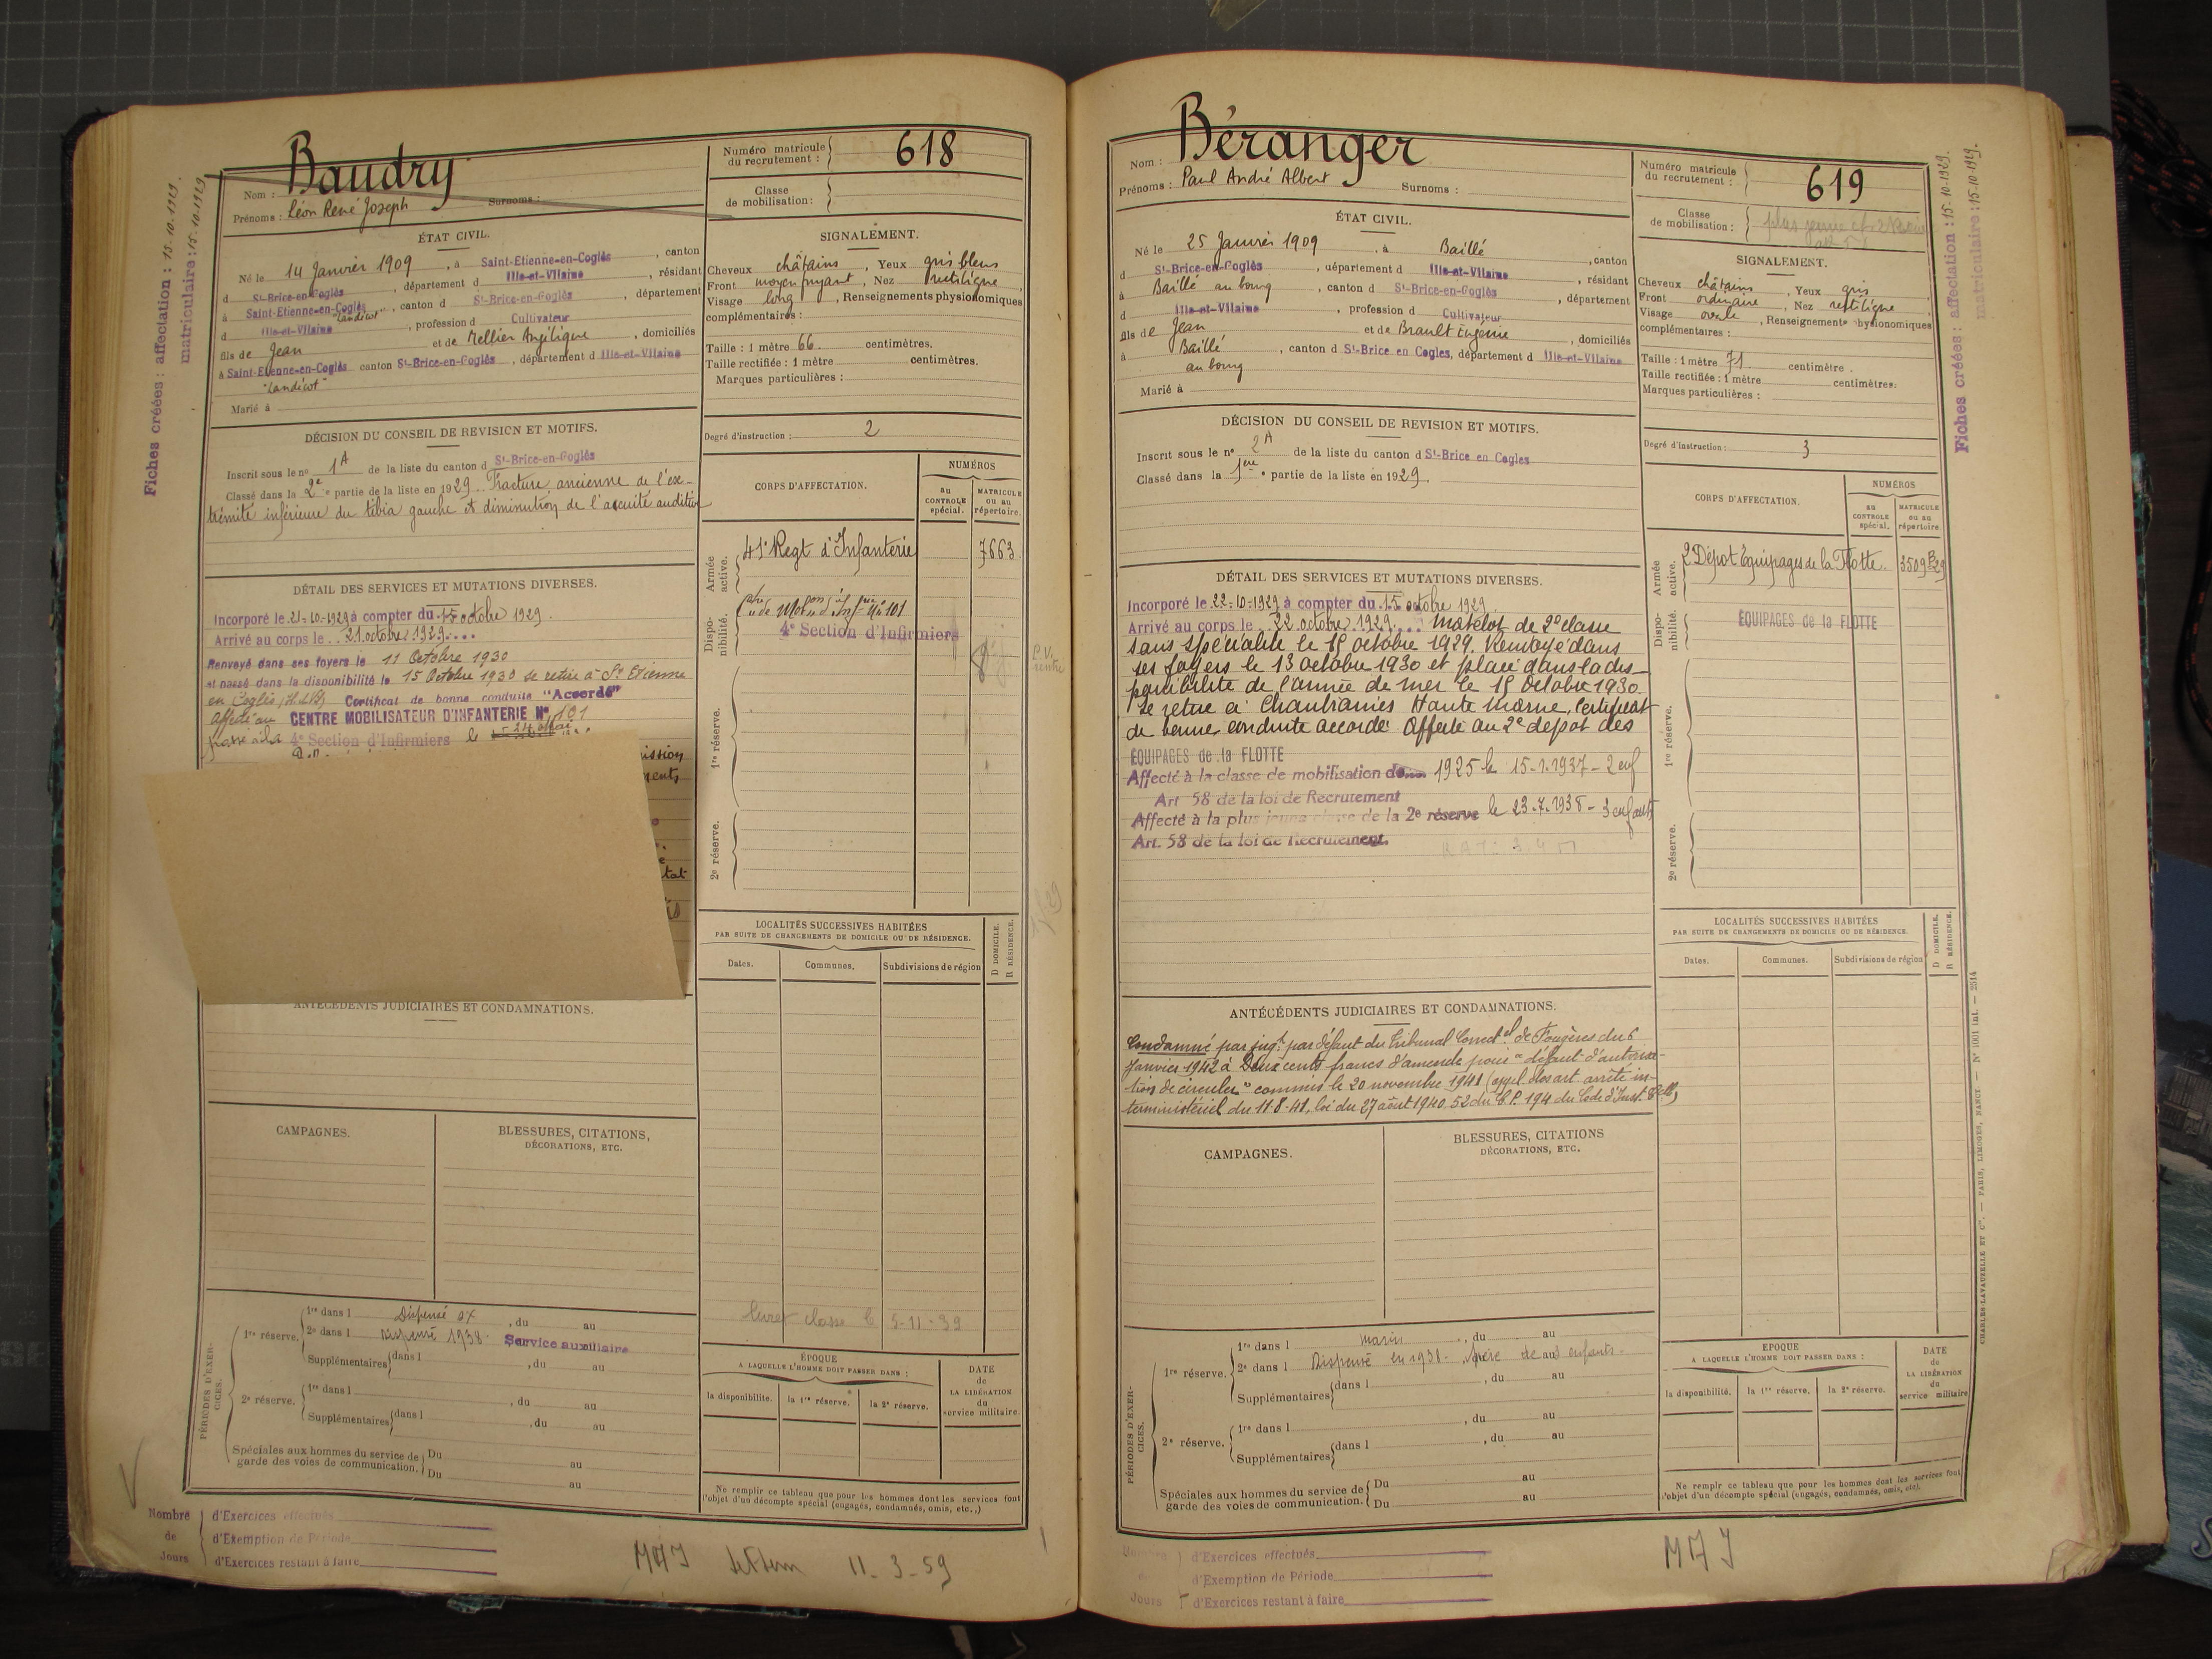 Fiches créées : affectation : 15-10-1929.
matriculaire : 15-10-1929
Nom : Baudry
Prénoms : Léon René Joseph Surnoms :
Numéro matricule
du recrutement : 618
Classe
de mobilisation :
ÉTAT CIVIL.
Né le 14 Janvier 1909, à Saint-Etienne-en-Coglès, canton
d St-Brice-en-Coglès, département d Ille-et-Vilaine, résidant
à Saint-Etienne-en-Coglès "Landicot", canton d St-Brice-en-Coglès, département
d Ille-et-Vilaine, profession d Cultivateur
fils de Jean et de Mellier Angélique, domiciliés
à Saint-Etienne-en-Coglès canton St-Brice-en-Coglès, département d Ille-et-Vilaine
"Landicot"
Marié à
SIGNALEMENT.
Cheveux châtains, Yeux gris bleus
Front moyen fuyant, Nez rectiligne
Visage long, Renseignements physionomiques
complémentaires :
Taille : 1 mètre 66 centimètres.
Taille rectifiée : 1 mètre centimètres.
Marques particulières :
Degré d'instruction : 2
DÉCISION DU CONSEIL DE REVISION ET MOTIFS.
Inscrit sous le no 1A de la liste du canton d St-Brice-en-Coglès
Classé dans la 2e partie de la liste en 1929. Fracture ancienne de l'ex-
trémité inférieure du tibia gauche et diminution de l'acuité auditive
CORPS D'AFFECTATION.
NUMÉROS
au
CONTROLE
spécial.
MATRICULE
ou au
répertoire.
Armée
active.
41e Regt d'Infanterie 7663
Dispo-
nibilité.
4e Section d'Infirmiers
1re réserve.
2e réserve.
DÉTAIL DES SERVICES ET MUTATIONS DIVERSES.
Incorporé le 21-10-1929 à compter du 15 octobre 1929.
Arrivé au corps le 21 octobre 1929
Renvoyé dans ses foyers le 11 Octobre 1930
et passé dans la disponibilité le 15 Octobre 1930 se retire à St Etienne
en Coglès (I. et V) Certificat de bonne conduite "Accordé"
affecté au CENTRE MOBILISATEUR D'INFANTERIE No 101
passé à la 4e Section d'Infirmiers le
LOCALITÉS SUCCESSIVES HABITÉES
PAR SUITE DE CHANGEMENTS DE DOMICILE OU DE RÉSIDENCE.
D DOMICILE.
R RÉSIDENCE.
Dates.
Communes.
Subdivisions de région
ANTÉCÉDENTS JUDICIAIRES ET CONDAMNATIONS.
CAMPAGNES.
BLESSURES, CITATIONS,
DÉCORATIONS, ETC.
classe le 5-11-39
PÉRIODES D'EXER-
CICES.
1re réserve.
1re dans l Dispensé, du au
2e dans l Dispensé 1938. Service auxiliaire
Supplémentaires dans l , du au
2e réserve.
1re dans l , du au
Supplémentaires dans l , du au
Spéciales aux hommes du service de
garde des voies de communication.
Du au
Du au
ÉPOQUE
A LAQUELLE L'HOMME DOIT PASSER DANS :
la disponibilité.
la 1re réserve.
la 2e réserve.
DATE
de
LA LIBÉRATION
du
service militaire.
Ne remplir ce tableau que pour les hommes dont les services font
l'objet d'un décompte spécial (engagés, condamnés, omis, etc.,)
Nombre
de
Jours
d'Exercices effectués
d'Exemption de Période
d'Exercices restant à faire
11-3-59
Nom : Béranger
Prénoms : Paul André Albert Surnoms :
Numéro matricule
du recrutement : 619
Classe
de mobilisation :
ÉTAT CIVIL.
Né le 25 Janvier 1909, à Baillé, canton
d St-Brice-en-Coglès, département d Ille-et-Vilaine, résidant
à Baillé au bourg, canton d St-Brice-en-Coglès, département
d Ille-et-Vilaine, profession d Cultivateur
fils de Jean et de Brault Eugénie, domiciliés
à Baillé, canton d St-Brice en Cogles, département d Ille-et-Vilaine
au bourg
Marié à
SIGNALEMENT.
Cheveux châtains, Yeux gris
Front ordinaire, Nez rectiligne
Visage ovale, Renseignements physionomiques
complémentaires :
Taille : 1 mètre 71 centimètre.
Taille rectifiée : 1 mètre centimètres.
Marques particulières :
Degré d'instruction : 3
DÉCISION DU CONSEIL DE REVISION ET MOTIFS.
Inscrit sous le no 2A de la liste du canton d St-Brice en Cogles
Classé dans la 1ère partie de la liste en 1929.
CORPS D'AFFECTATION.
NUMÉROS
au
CONTROLE
spécial.
MATRICULE
ou au
répertoire.
Armée
active.
2e Dépot Equipages de la Flotte. 3509 B 29
Dispo-
nibilité.
ÉQUIPAGES de la FLOTTE
1re réserve.
2e réserve.
DÉTAIL DES SERVICES ET MUTATIONS DIVERSES.
Incorporé le 22-10-1929 à compter du 15 octobre 1929.
Arrivé au corps le 22 octobre 1929. Matelot de 2e classe
sans spécialité le 15 octobre 1929. Renvoyé dans
ses foyers le 13 octobre 1930 et placé dans la dis-
ponibilité de l'armée de mer le 15 Octobre 1930.
Se retire à Chantraines Haute Marne, Certificat
de bonne conduite accordé. Affecté au 2e dépot des
ÉQUIPAGES de la FLOTTE
Affecté à la classe de mobilisation de 1925 le 15-1-1937 - 2 enf
Art 58 de la loi de Recrutement
Affecté à la plus jeune classe de la 2e réserve le 23-7-1938 - 3 enfants
Art. 58 de la loi de Recrutement.
LOCALITÉS SUCCESSIVES HABITÉES
PAR SUITE DE CHANGEMENTS DE DOMICILE OU DE RÉSIDENCE.
D DOMICILE.
R RÉSIDENCE.
Dates.
Communes.
Subdivisions de région
ANTÉCÉDENTS JUDICIAIRES ET CONDAMNATIONS.
Condamné par jugt. par défaut du Tribunal Correctel de Fougères du 6
janvier 1942 à Deux cents francs d'amende pour "défaut d'autorisa-
tion de circuler" commis le 20 novembre 1941 (appl. des art. arrêté in-
terministériel du 11-8-41, loi du 27 août 1940, 52 du C.P. 194 du Code d'Inst. Celle)
CAMPAGNES.
BLESSURES, CITATIONS
DÉCORATIONS, ETC.
PÉRIODES D'EXER-
CICES.
1re réserve.
1re dans l marin, du au
2e dans l Dispensé en 1938. père de 3 enfants.
Supplémentaires dans l , du au
2e réserve.
1re dans l , du au
Supplémentaires dans l , du au
Spéciales aux hommes du service de
garde des voies de communication.
Du au
Du au
EPOQUE
A LAQUELLE L'HOMME DOIT PASSER DANS :
la disponibilité.
la 1re réserve.
la 2e réserve.
DATE
de
LA LIBÉRATION
du
service militaire
Ne remplir ce tableau que pour les hommes dont les services font
l'objet d'un décompte spécial (engagés, condamnés, omis, etc).
Nombre
de
Jours
d'Exercices effectués
d'Exemption de Période
d'Exercices restant à faire
Fiches créées : affectation : 15-10-1929.
matriculaire : 15-10-1929.
CHARLES-LAVAUZELLE ET Cie. — PARIS, LIMOGES, NANCY. — No 1001 int. — 2514